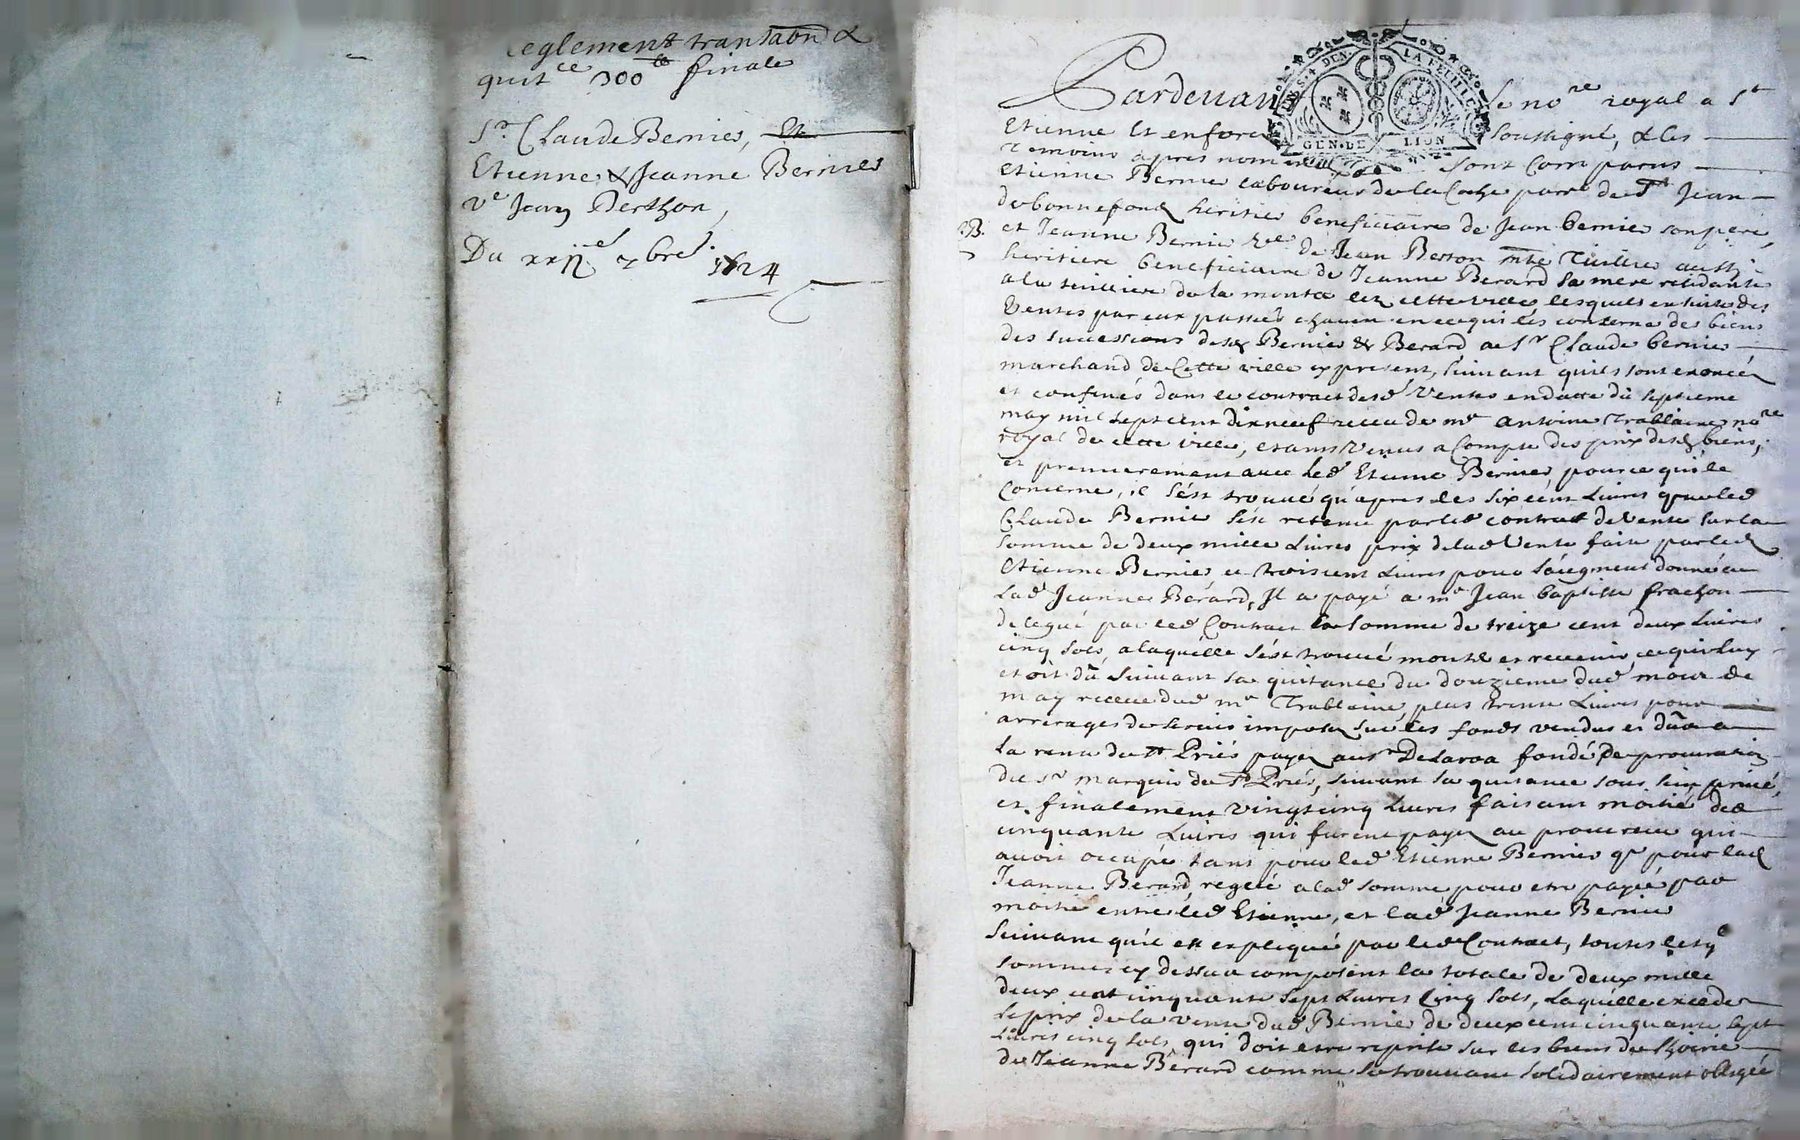 Reglement transaōn &
quitce 300 lt finale
Sr. Claude Bernier, Et
Etienne & Jeanne Bernier
ve Jean Berthon,
Du xxije 7bre. 1724
Pardevant Le nore royal a St
DES. 4 DEN. LA FEUILLE
GEN. DE LION
Etienne Et enforest soussigné, & les
temoins apres nommés sont Comparus
Etienne Bernier laboureur de la parre de St Jean
de bonnefond heritier beneficiaire de Jean bernier son pere,
B.
et Jeanne Bernier vee de Jean Berton aussy
heritiere beneficiaire de Jeanne Berard sa mere residante
a la de la montée lez cette ville, lesquels en suitte des
Ventes par eux passées chacun en ce qui les conserne des biens
des successions desd Bernier & Berard au Sr Claude bernier
marchand de Cette ville cy present, suivant quils sont enoncéz
et confinés dans le contract desd Ventes en datte du septieme
may mil sept cent dixneuf receu de me antoine Trablaine nore
royal de cette ville, etants venus a Compte des prix desd biens,
et premierement avec led Etienne Bernier, pour ce qui le
Concerne, il s'est trouvé qu'apres les six cent Livres que led
Claude Bernier s'est retenu par led contract de vente sur la
somme de deux mille Livres prix de lad Vente faite par led
Etienne Bernier et trois cent Livres pour donné a
Lad Jeanne Berard, Il a payé a me Jean baptiste frachon
delegué par led Contract la somme de treize cent deux Livres
cinq sols, a laquelle s'est trouvé monter et revenir, ce qui luy
etoit dû suivant sa quitance du douzieme dud mois de
may receue dud me Trablaine, plus trente Livres pour
arrerages de servis imposés sur les fonds vendus et dûs a
la rente de St Priés payez au sr Delaroa fondé de procuration
du sr marquis de St Priés, suivant sa quitance sous sein privé,
et finalement vingt cinq Livres faisant moitié des
cinquante Livres qui furent payez au procureur qui
avoit occupé tant pour led Etienne Bernier que pour lad
Jeanne Berard, reglé a lad somme pour etre payée par
moitié entre led Etienne, et lad Jeanne Bernier
suivant qu'il est expliqué par led Contract, toutes lesqe
sommes cy dessus composent la totale de deux mille
deux cent cinquante sept Livres Cinq sols, Laquelle excede
le prix de la vente dud Bernier de deux cent cinquante sept
Livres cinq sols qui doit etre reprise sur les biens de lhoirie
de Jeanne Berard comme se trouvant solidairement obligée